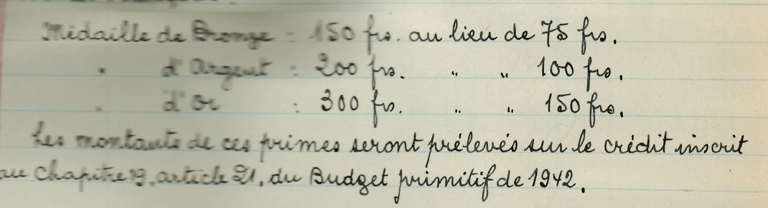 Médaille de Bronze : 150 frs. au lieu de 75 frs.
" d'Argent : 200 frs. " " 100 frs.
" d'Or : 300 frs. " " 150 frs.
Les montants de ces primes seront prélevés sur le crédit inscrit
au chapitre 19, article 21, du Budget primitif de 1942.